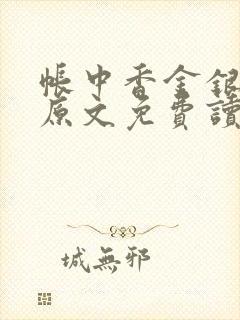 帳中香金銀
原文免費讀
城無邪